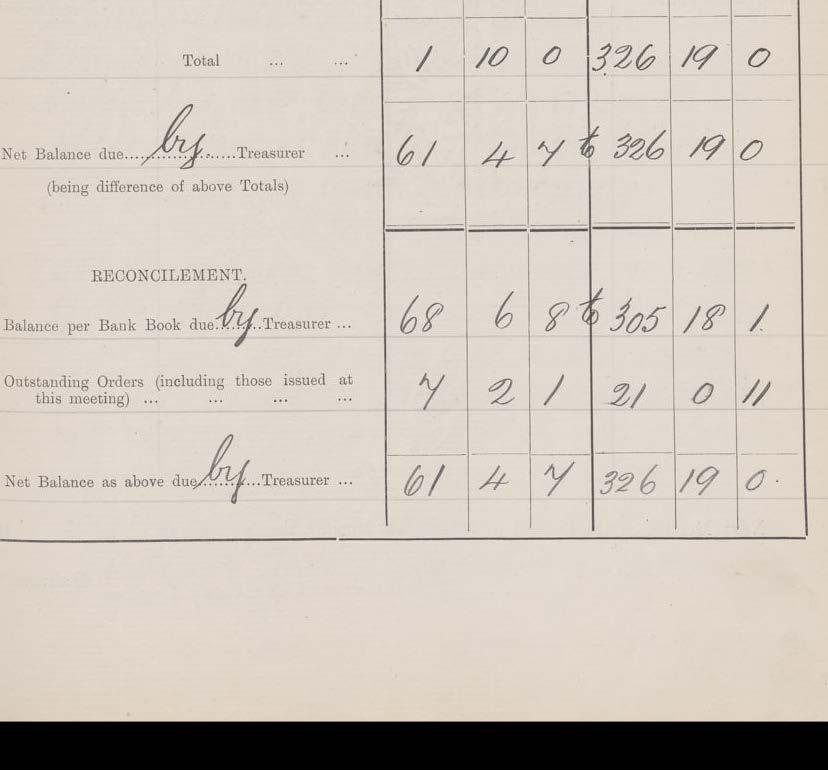 Total ... ... 1 10 0 326 19 0
Net Balance due....by....Treasurer ... 61 4 7 to 326 19 0
(being difference of above Totals)
RECONCILEMENT.
Balance per Bank Book due..by..Treasurer ... 68 6 8 to 305 18 1
Outstanding Orders (including those issued at
this meeting) ... ... ... ... 7 2 1 21 0 11
Net Balance as above due..by..Treasurer ... 61 4 7 326 19 0